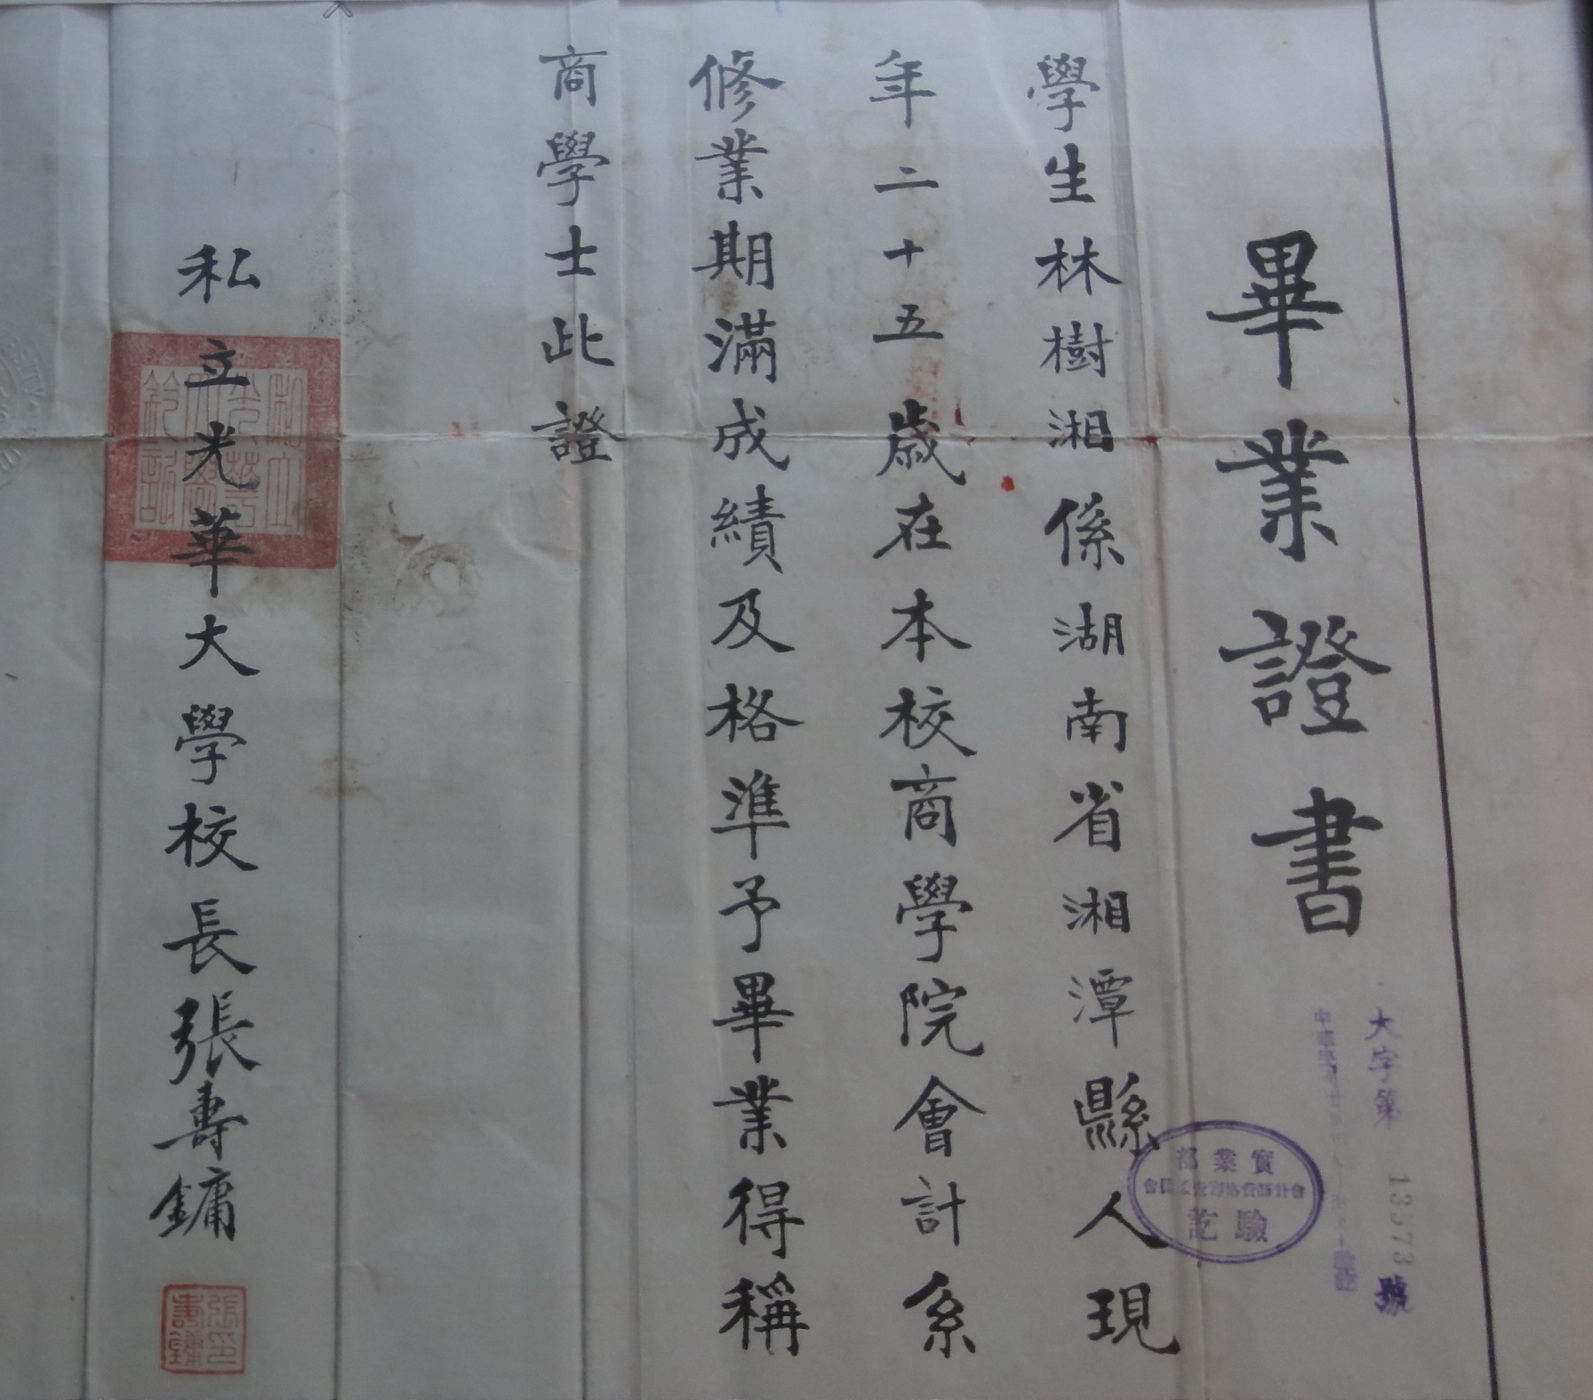 畢業證書
大字第 13573 號
實業部
驗訖
學生林樹湘係湖南省湘潭縣人現
年二十五歲在本校商學院會計系
修業期滿成績及格準予畢業得稱
商學士此證
私立光華大學校長張壽鏞
私立光華大學鈐記
張壽鏞印